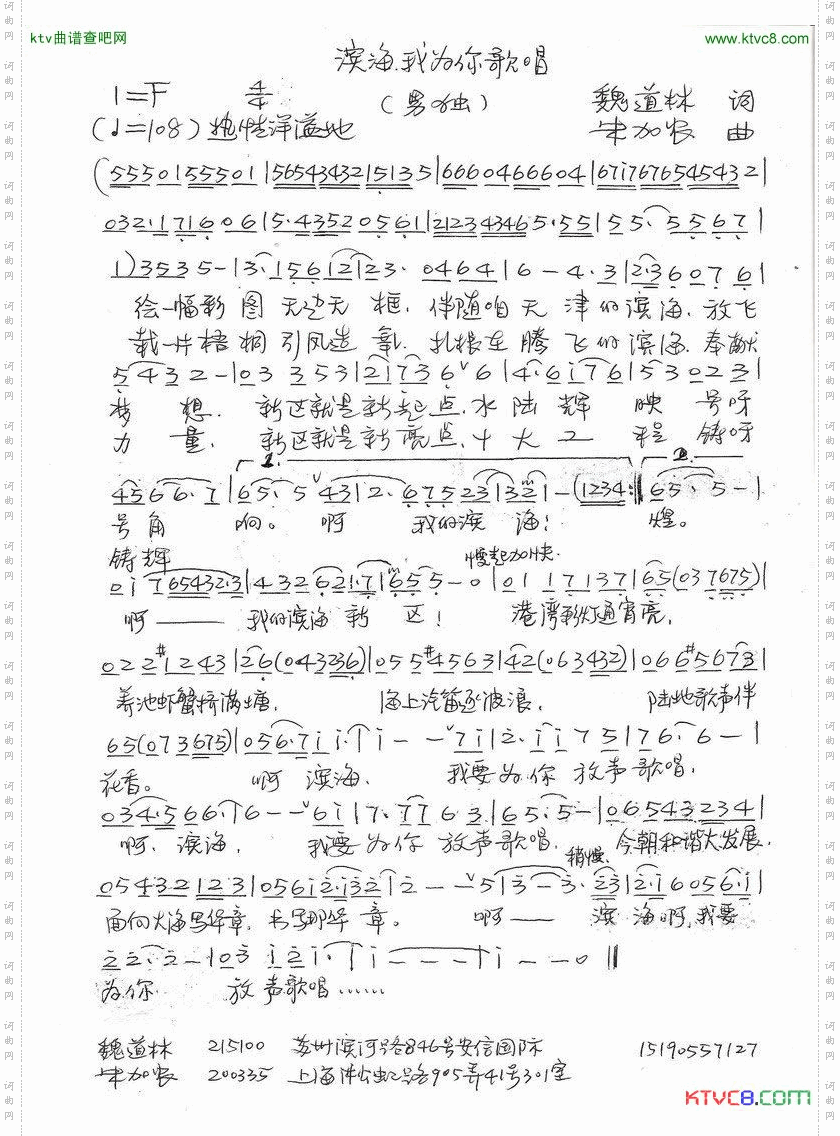 ktv曲谱查吧网 www.ktvc8.com
滨海,我为你歌唱
1=F 4/4 (男独) 魏道林 词
(♩=108) 热情洋溢地 朱加农 曲
(5 5 5 0 1 5 5 5 0 1 | 5 6 5 4 3 4 3 2 1 5 1 3 5 | 6 6 6 0 4 6 6 6 0 4 | 6 7 i 7 6 7 6 5 4 5 4 3 2 |
0 3 2 · 1 7 1 6 0 6 | 5 · 4 3 5 2 0 5 6 1 | 2 1 2 3 4 3 4 6 5 · 5 5 | 5 5 · 5 5 6 7 |
1) 3 5 3 5 - | 3 · 1 5 6 1 2 | 2 3 · 0 4 6 4 | 6 - 4 · 3 | 2 · 3 6 0 7 6 |
绘一幅彩图 天边无框, 伴随咱天津的滨海, 放飞
栽一片梧桐 引凤造氛, 扎根在腾飞的滨海, 奉献
5 4 3 2 - | 0 3 3 5 3 | 2 i 7 3 6 ∨ 6 | 4 · 6 i 7 6 | 5 3 0 2 3 |
梦想. 新区就是新起点,水陆辉映 号呀
力量, 新区就是新亮点,十大工程 铸呀
1. 2.
4 5 6 6 · 7 | 6 5 · 5 ∨ 4 3 | 2 · 6 7 5 2 3 | 3 2 | - (1 2 3 4 :‖ 6 5 · 5 - |
号角 响。 啊 我的滨海! 煌。
铸辉 慢起加快
0 i 7 6 5 4 3 2 · 3 | 4 3 2 6 2 1 · 7 | 6 5 5 - 0 | 0 1 1 7 1 3 7 | 6 5 (0 3 7 6 7 5) |
啊—— 我的滨海新区! 港湾彩灯通宵亮,
0 2 2 #1 2 4 3 | 2 6 (0 4 3 2 3 6) | 0 5 5 #4 5 6 3 | 4 2 (0 6 3 4 3 2) | 0 6 6 #5 6 7 3 |
养池虾蟹挤满塘, 海上汽笛逐波浪, 陆地歌声伴
6 5 (0 7 3 6 7 5) | 0 5 6 · 7 i i · | i - - ∨ 7 i | 2 · i i 7 5 | 7 6 · 6 - |
花香。 啊 滨海, 我要为你放声歌唱,
0 3 4 · 5 6 6 · | 6 - - ∨ 6 i | 7 · 7 7 6 3 | 6 5 · 5 - | 0 6 5 4 3 2 3 4 |
啊, 滨海, 我要为你放声歌唱, 稍慢 今朝和谐大发展,
0 5 4 3 2 1 2 3 | 0 5 6 i 2 · i 3 2 | 2 - - ∨ 5 | 3 - 3 · 2 3 | 2 · i 6 0 5 6 · i |
面向大海写华章, 书写那华章。 啊—— 滨海啊,我要
2 2 · 2 - | 0 3 i 2 i · | i - - - | i - - 0 ‖
为你 放声歌唱……
魏道林 215100 苏州滨河路846号安信国际 15190557127
朱加农 200335 上海 路905弄41号301室
KTVC8.COM
词曲网